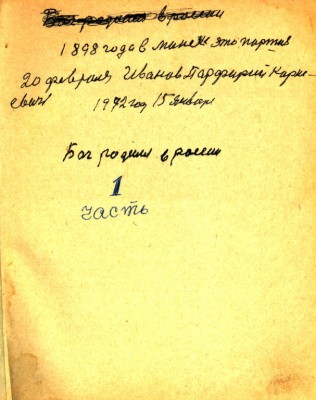 Бог родился в россии
1898 года в минске это партия
20 февраля Иванов Парфирий Карне-
евич 1972 год 15 января
Бог родился в россии
1
часть